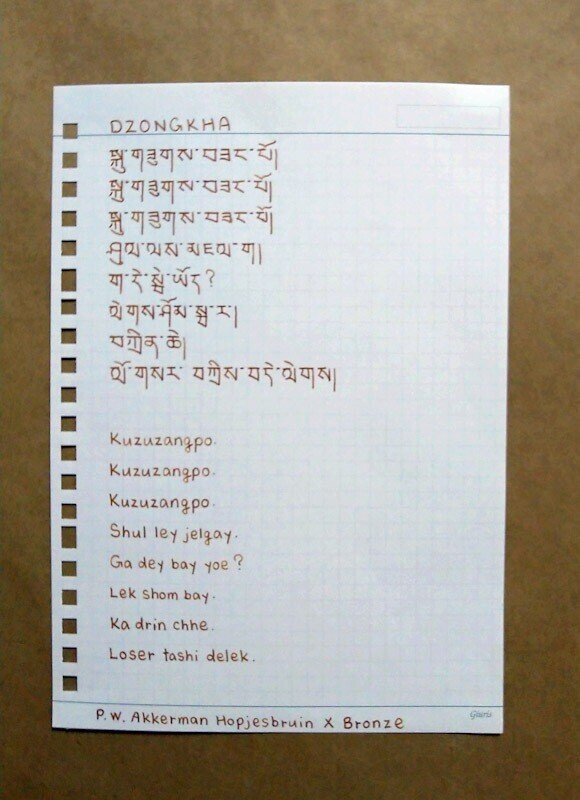 DZONGKHA
སྐུ་གཟུགས་བཟང་པོ།
སྐུ་གཟུགས་བཟང་པོ།
སྐུ་གཟུགས་བཟང་པོ།
ཤུལ་ལས་མཇལ་ག།
ག་དེ་སྦེ་ཡོད?
ལེགས་ཤོམ་སྦ་ར།
བཀྲིན་ཆེ།
ལོ་གསར་ བཀྲིས་བདེ་ལེགས།
Kuzuzangpo.
Kuzuzangpo.
Kuzuzangpo.
Shul ley jelgay.
Ga dey bay yoe?
Lek shom bay.
Ka drin chhe.
Loser tashi delek.
P.W. Akkerman Hopjesbruin X Bronze